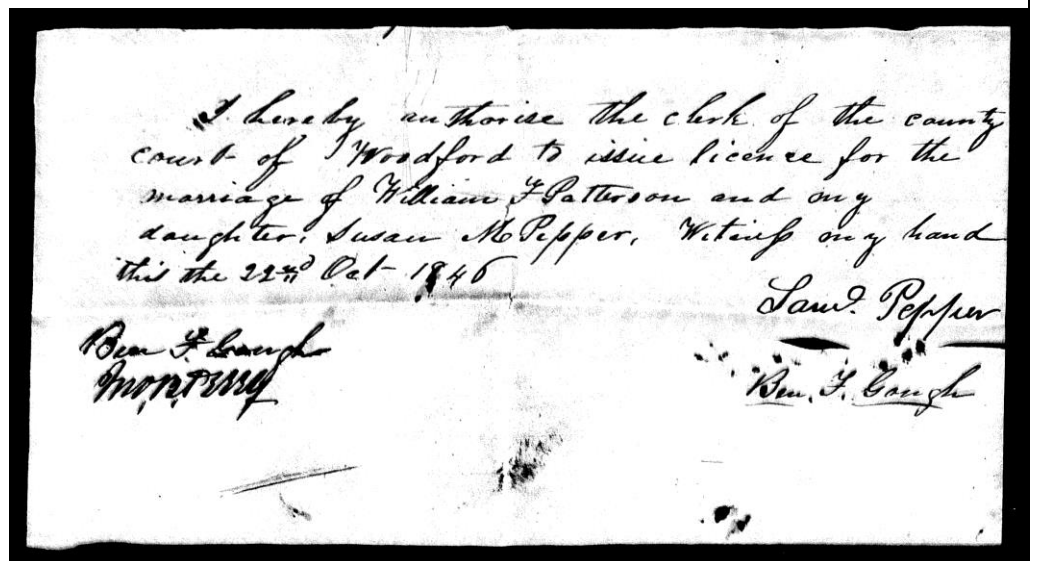 I hereby authorise the clerk of the county
court of Woodford to issue licence for the
marriage of William F Patterson and my
daughter, Susan M Pepper, Witness my hand
this the 22nd Oct 1846
Saml. Pepper
Ben F. Gough
Ben, F. Gough